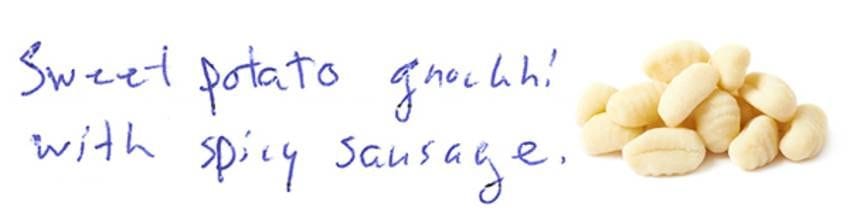 Sweet potato gnocchi
with spicy sausage.